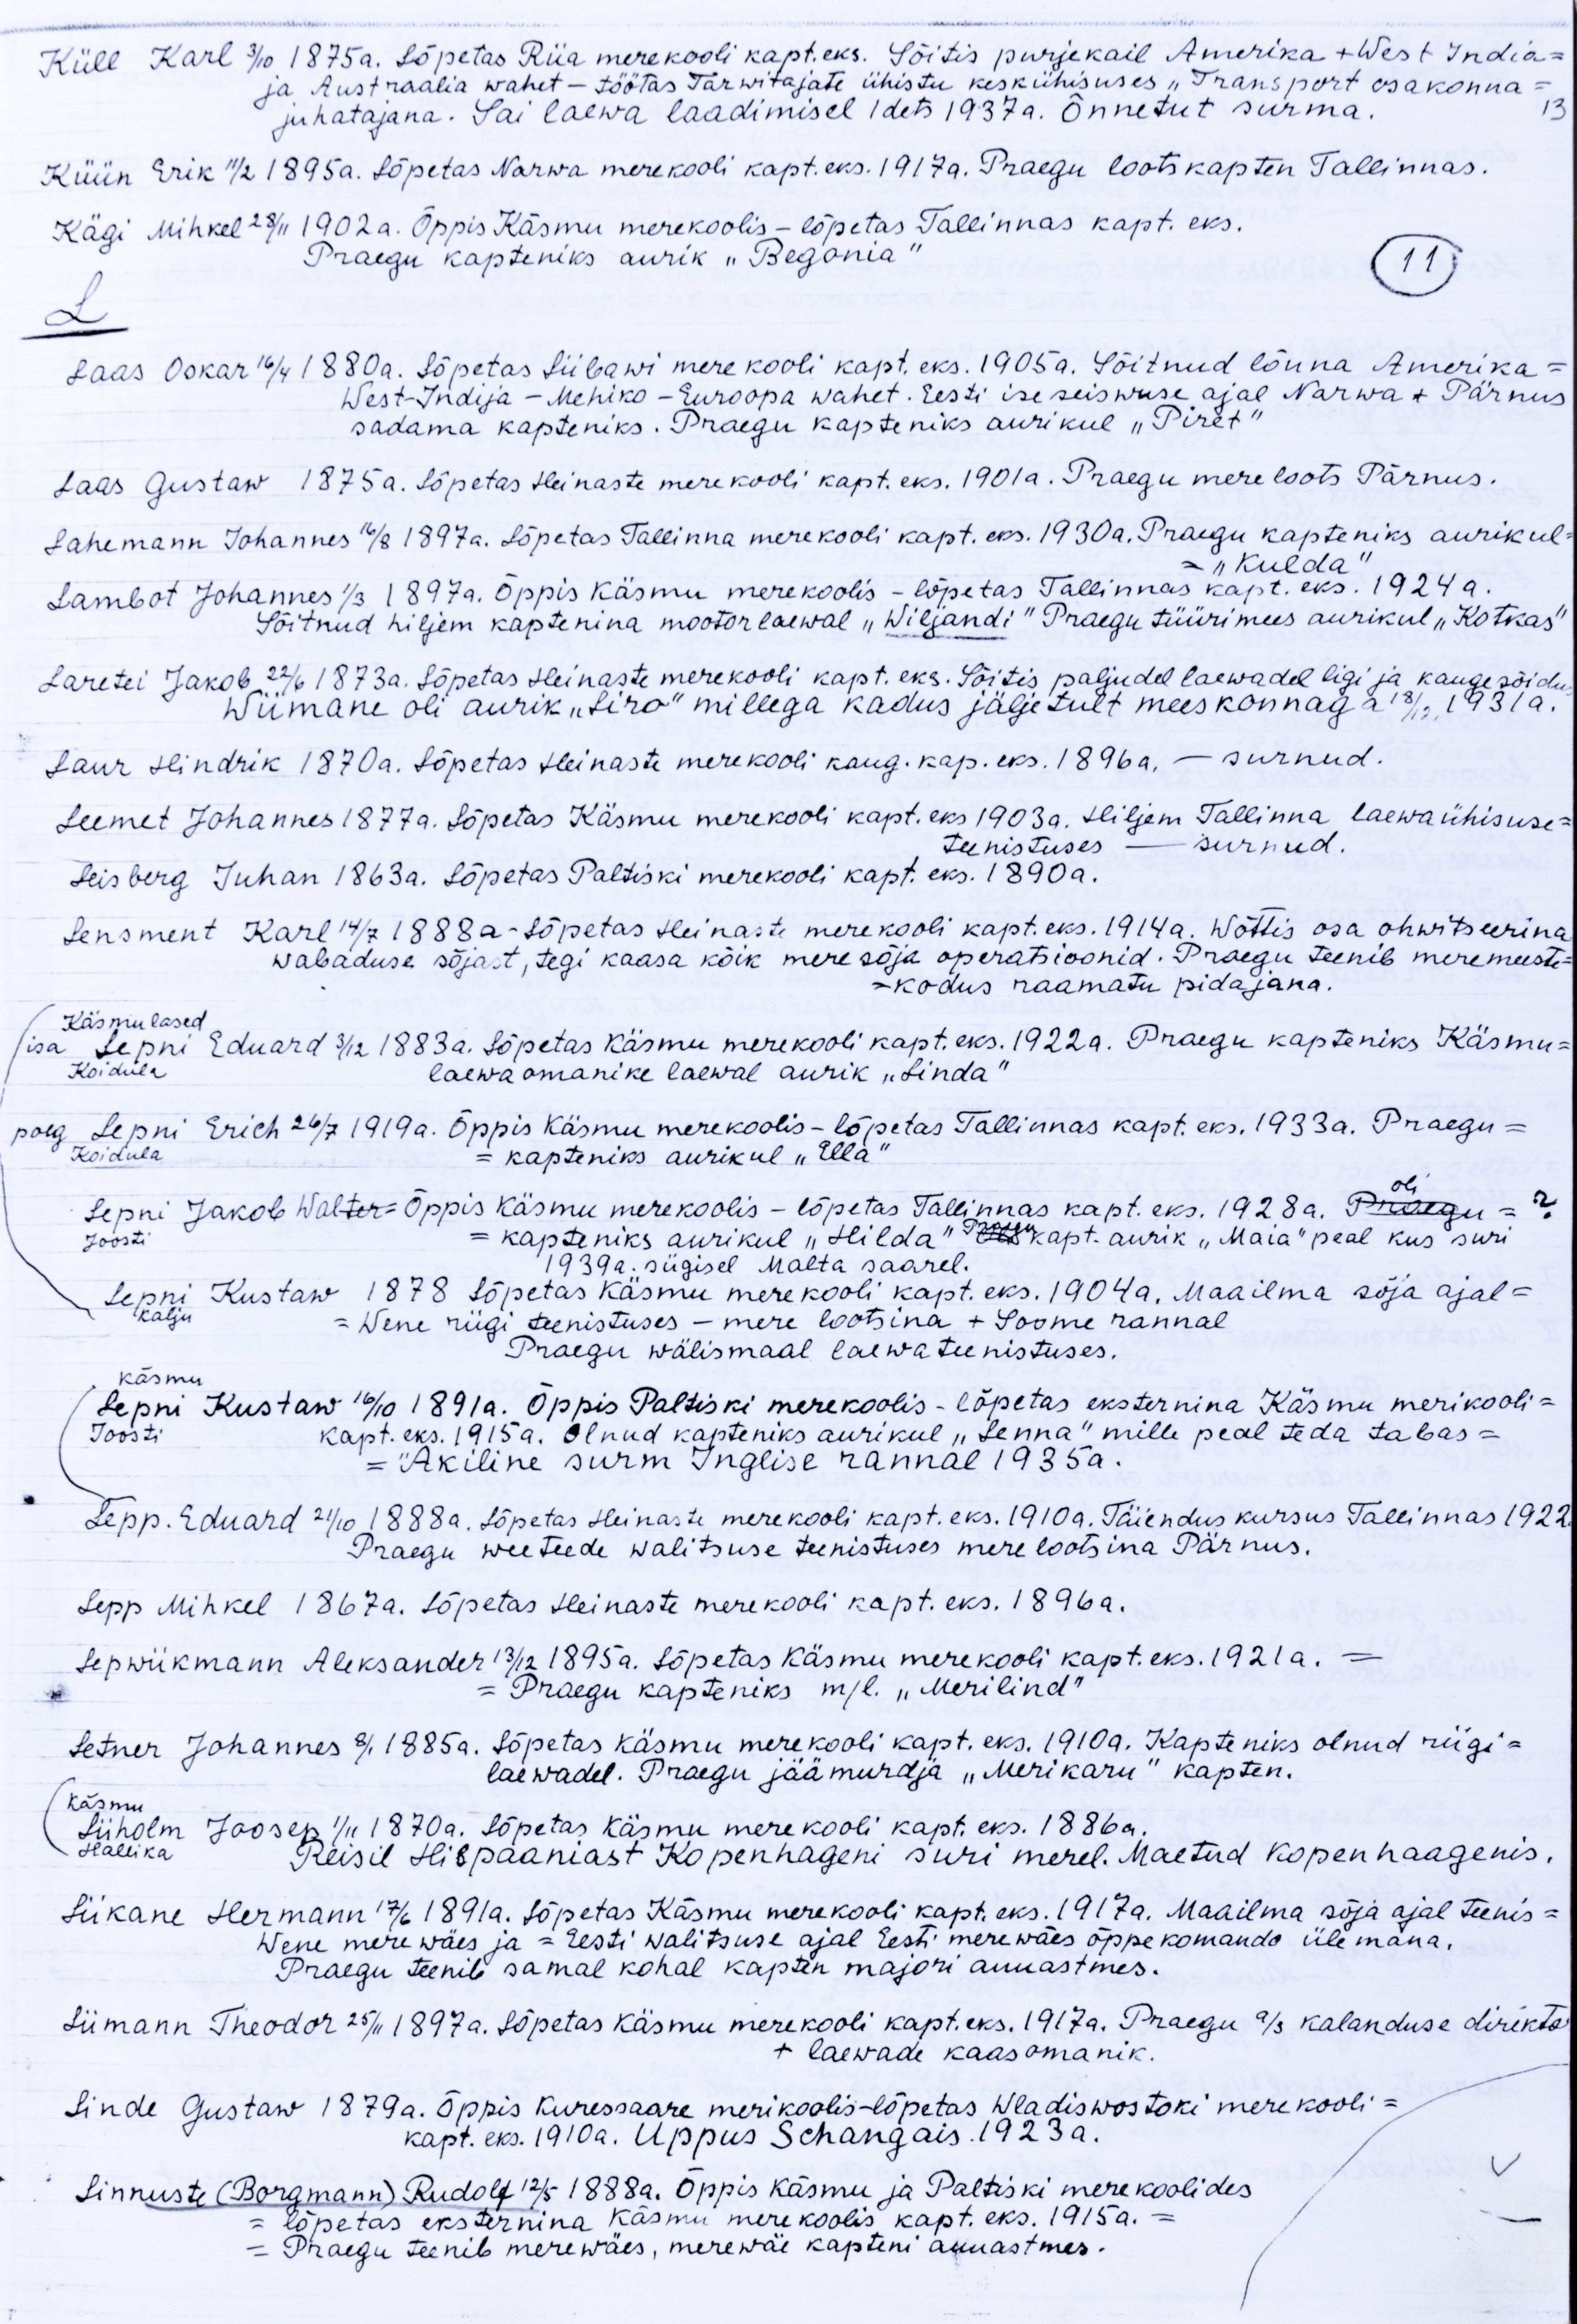 Küll Karl 3/10 1875a. Lõpetas Riia merekooli kapt.eks. Sõitis purjekail Amerika + West India=
ja Austraalia wahet – töötas Tarwitajate ühistu keskühisuses „Transport osakonna =
juhatajana. Sai laewa laadimisel 1 dets 1937a. Õnnetut surma.
13
Küün Erik 11/2 1895a. Lõpetas Narwa merekooli kapt.eks. 1917a. Praegu lootskapten Tallinnas.
Kägi Mihkel 28/11 1902a. Õppis Käsmu merekoolis – lõpetas Tallinnas kapt. eks.
Praegu kapteniks aurik „Begonia"
11
L
Laas Oskar 16/4 1880a. Lõpetas Liibawi mere kooli kapt. eks. 1905a. Sõitnud lõuna Amerika =
West-Indija – Mehiko – Euroopa wahet. Eesti iseseiswuse ajal Narwa + Pärnus
sadama kapteniks. Praegu kapteniks aurikul „Piret"
Laas Gustaw 1875a. Lõpetas Heinaste merekooli kapt. eks. 1901a. Praegu mereloots Pärnus.
Lahemann Johannes 16/8 1897a. Lõpetas Tallinna merekooli kapt. eks. 1930a. Praegu kapteniks aurikul=
= „Kulda"
Lambot Johannes 1/3 1897a. Õppis Käsmu merekoolis – lõpetas Tallinnas kapt. eks. 1924a.
Sõitnud hiljem kaptenina mootorlaewal „Wiljandi" Praegu tüürimees aurikul „Kotkas"
Laretei Jakob 22/6 1873a. Lõpetas Heinaste merekooli kapt. eks. Sõitis paljudel laewadel ligi ja kaugesõidu
Wiimane oli aurik „Liro" millega kadus jäljetult meeskonnaga 18/12. 1931a.
Laur Hindrik 1870a. Lõpetas Heinaste merekooli kaug. kap. eks. 1896a. — surnud.
Leemet Johannes 1877a. Lõpetas Käsmu merekooli kapt. eks 1903a. Hiljem Tallinna laewaühisuse=
teenistuses — surnud.
Leisberg Juhan 1863a. Lõpetas Paltiski merekooli kapt. eks. 1890a.
Lensment Karl 14/7 1888a – Lõpetas Heinaste merekooli kapt. eks. 1914a. Wõttis osa ohwitseerina
wabaduse sõjast, tegi kaasa kõik meresõja operatsioonid. Praegu teenib meremeeste=
=kodus raamatu pidajana.
Käsmulased
isa Lepni Eduard 3/12 1883a. Lõpetas Käsmu merekooli kapt. eks. 1922a. Praegu kapteniks Käsmu=
Koidula laewaomanike laewal aurik „Linda"
poeg Lepni Erich 26/7 1919a. Õppis Käsmu merekoolis – lõpetas Tallinnas kapt. eks. 1933a. Praegu =
Koidula = kapteniks aurikul „Ella"
oli
Lepni Jakob Walter= Õppis Käsmu merekoolis – lõpetas Tallinnas kapt. eks. 1928a. Praegu = ?
Joosti = kapteniks aurikul „Hilda" Praegu kapt. aurik „Maia" peal kus suri
1939a. sügisel Malta saarel.
Lepni Kustaw 1878 Lõpetas Käsmu merekooli kapt. eks. 1904a. Maailma sõja ajal =
Kalju = Wene riigi teenistuses – mere lootsina + Soome rannal
Praegu wälismaal laewateenistuses.
Käsmu
Lepni Kustaw 16/10 1891a. Õppis Paltiski merekoolis – lõpetas eksternina Käsmu merikooli =
Joosti kapt. eks. 1915a. Olnud kapteniks aurikul „Lenna" mille peal teda tabas =
= Äkiline surm Inglise rannal 1935a.
Lepp. Eduard 21/10 1888a. Lõpetas Heinaste merekooli kapt. eks. 1910a. Täiendus kursus Tallinnas 1922.
Praegu weeteede walitsuse teenistuses mere lootsina Pärnus.
Lepp Mihkel 1867a. Lõpetas Heinaste merekooli kapt. eks. 1896a.
Lepwiikmann Aleksander 13/12 1895a. Lõpetas Käsmu merekooli kapt. eks. 1921a. =
= Praegu kapteniks m/l. „Merilind"
Letner Johannes 8/1 1885a. Lõpetas Käsmu merekooli kapt. eks. 1910a. Kapteniks olnud riigi =
laewadel. Praegu jäämurdja „Merikaru" kapten.
Käsmu
Liiholm Joosep 1/11 1870a. Lõpetas Käsmu merekooli kapt. eks. 1886a.
Hallika Reisil Hispaaniast Kopenhageni suri merel. Maetud Kopenhaagenis.
Liikane Hermann 17/6 1891a. Lõpetas Käsmu merekooli kapt. eks. 1917a. Maailma sõja ajal teenis =
Wene mere wäes ja = Eesti walitsuse ajal Eesti merewäes õppekomando ülemana.
Praegu teenib samal kohal kapten majori auuastmes.
Liimann Theodor 25/11 1897a. Lõpetas Käsmu merekooli kapt. eks. 1917a. Praegu a/s kalanduse direkto
+ laewade kaasomanik.
Linde Gustaw 1879a. Õppis Kuressaare merikoolis – lõpetas Wladiwostoki merekooli =
kapt. eks. 1910a. Uppus Schangais 1923a.
Linnuste (Borgmann) Rudolf 12/5 1888a. Õppis Käsmu ja Paltiski merekoolides
= lõpetas eksternina Käsmu merekoolis kapt. eks. 1915a. =
= Praegu teenib merewäes, merewäe kapteni auuastmes.